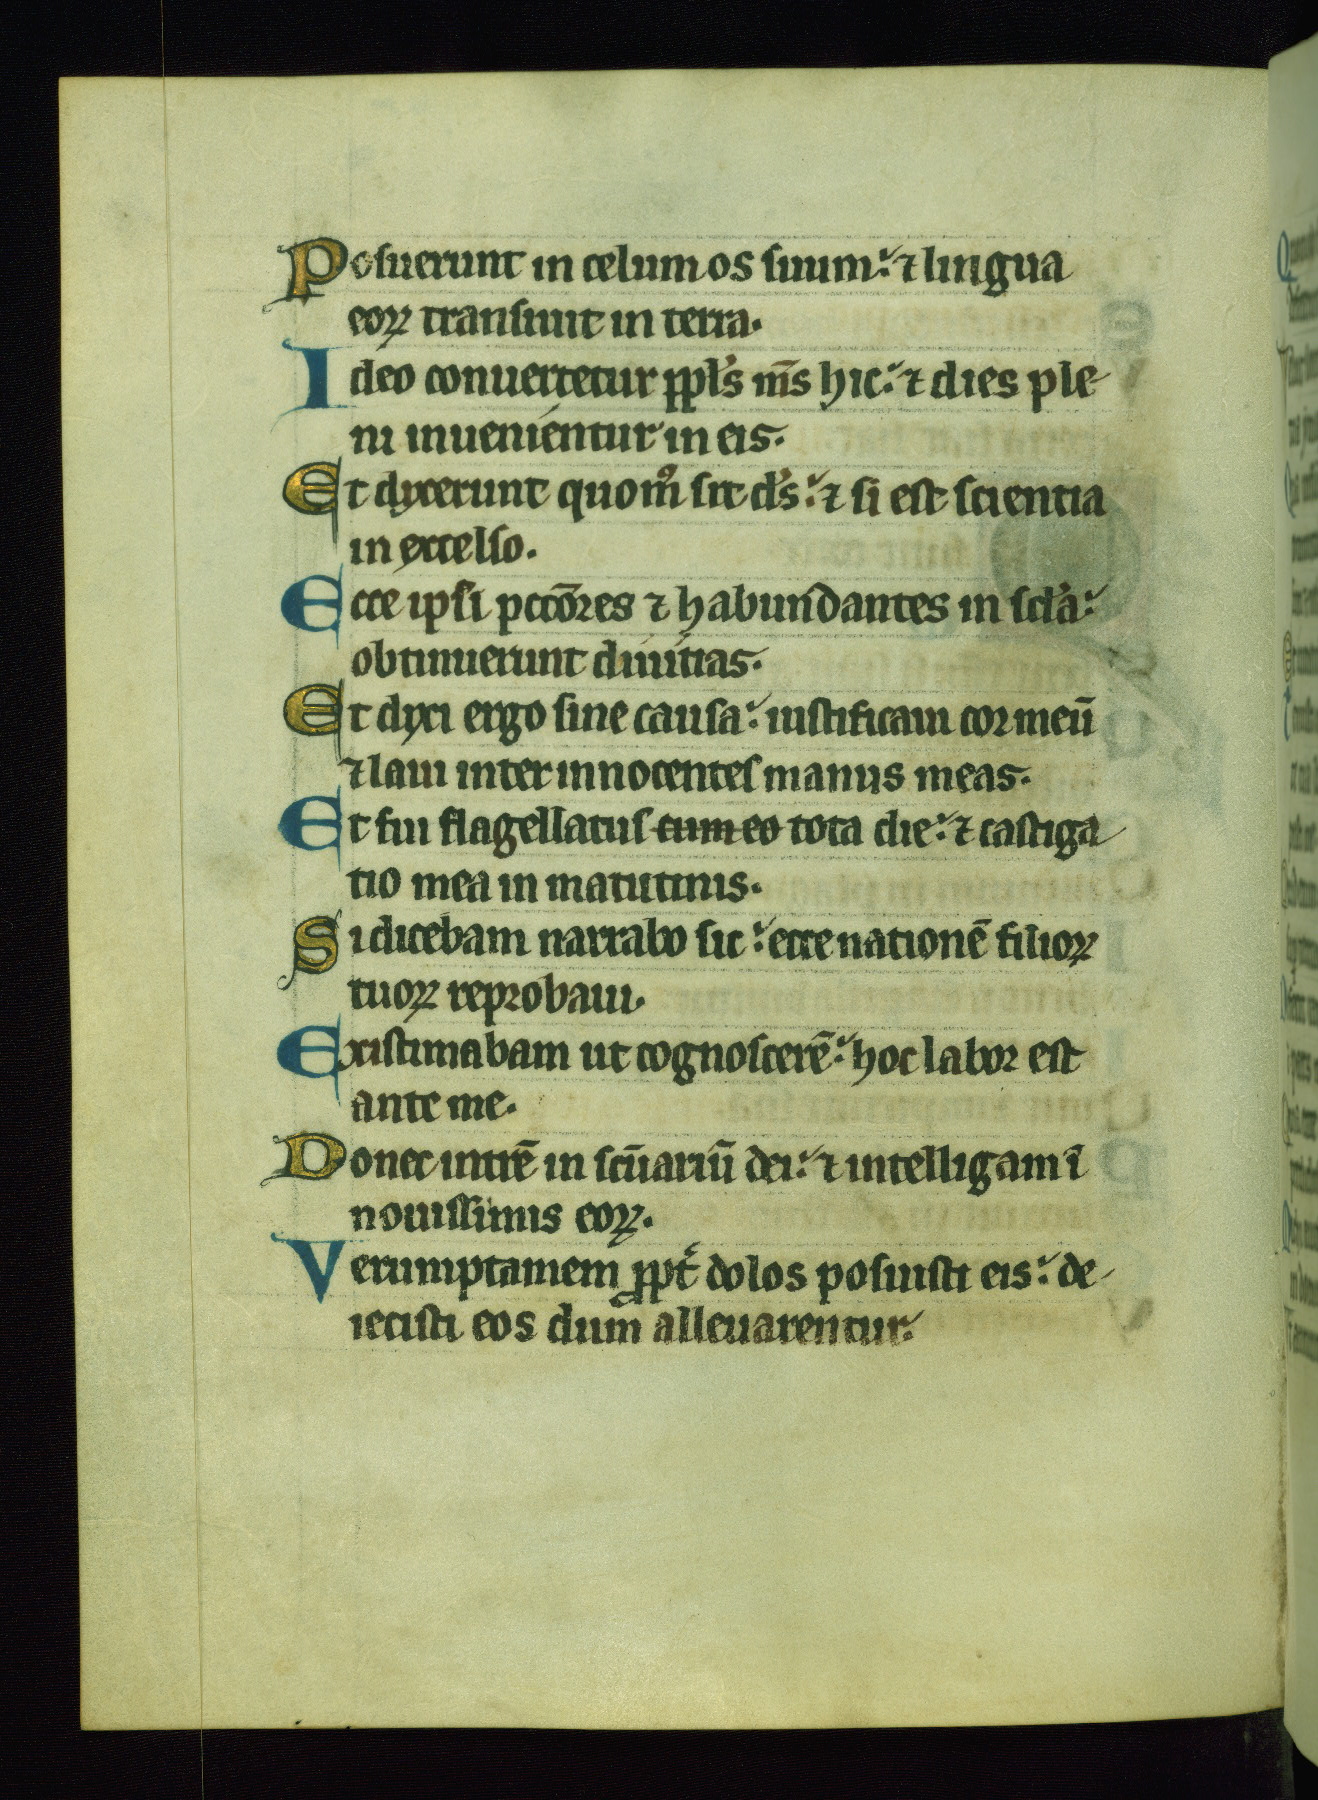 Posuerunt in celum os suum: ⁊ lingua
eoꝝ transiuit in terra.
Ideo conuertetur ppl's m̄s hic: ⁊ dies ple-
ni inuenientur in eis.
Et dyxerunt quom̊ sit d's: ⁊ si est scientia
in excelso.
Ecce ipsi pccōres ⁊ habundantes in scl'a:
obtinuerunt diuitias.
Et dyxi ergo sine causa: iustificaui cor meū
⁊ laui inter innocentes manus meas.
Et fui flagellatus cum eo tota die: ⁊ castiga
tio mea in matutinis.
Si dicebam narrabo sic: ecce nationē filioꝝ
tuoꝝ reprobaui.
Existimabam ut cognoscerē: hoc labor est
ante me.
Donec intrē in scūariū dei: ⁊ intelligam ī
nouissimis eoꝝ.
Verumptamem ꝓpt̉ dolos posuisti eis: de-
iecisti eos dum alleuarentur.